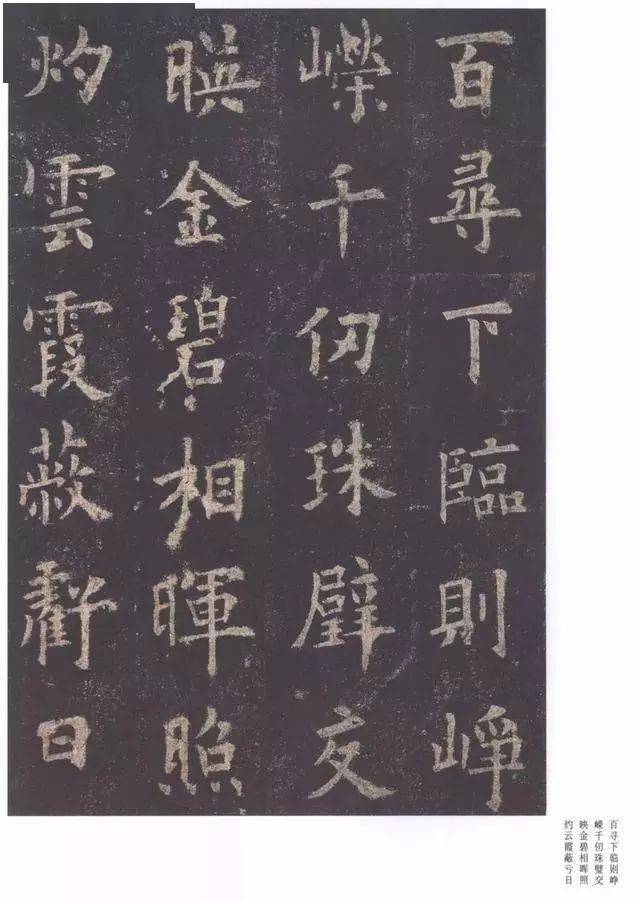 百尋下臨則崢
嶸千仞珠壁交
暎金碧相暉照
灼雲霞蔽虧日
百寻下临则峥
嵘千仞珠璧交
映金碧相晖照
灼云霞蔽亏日